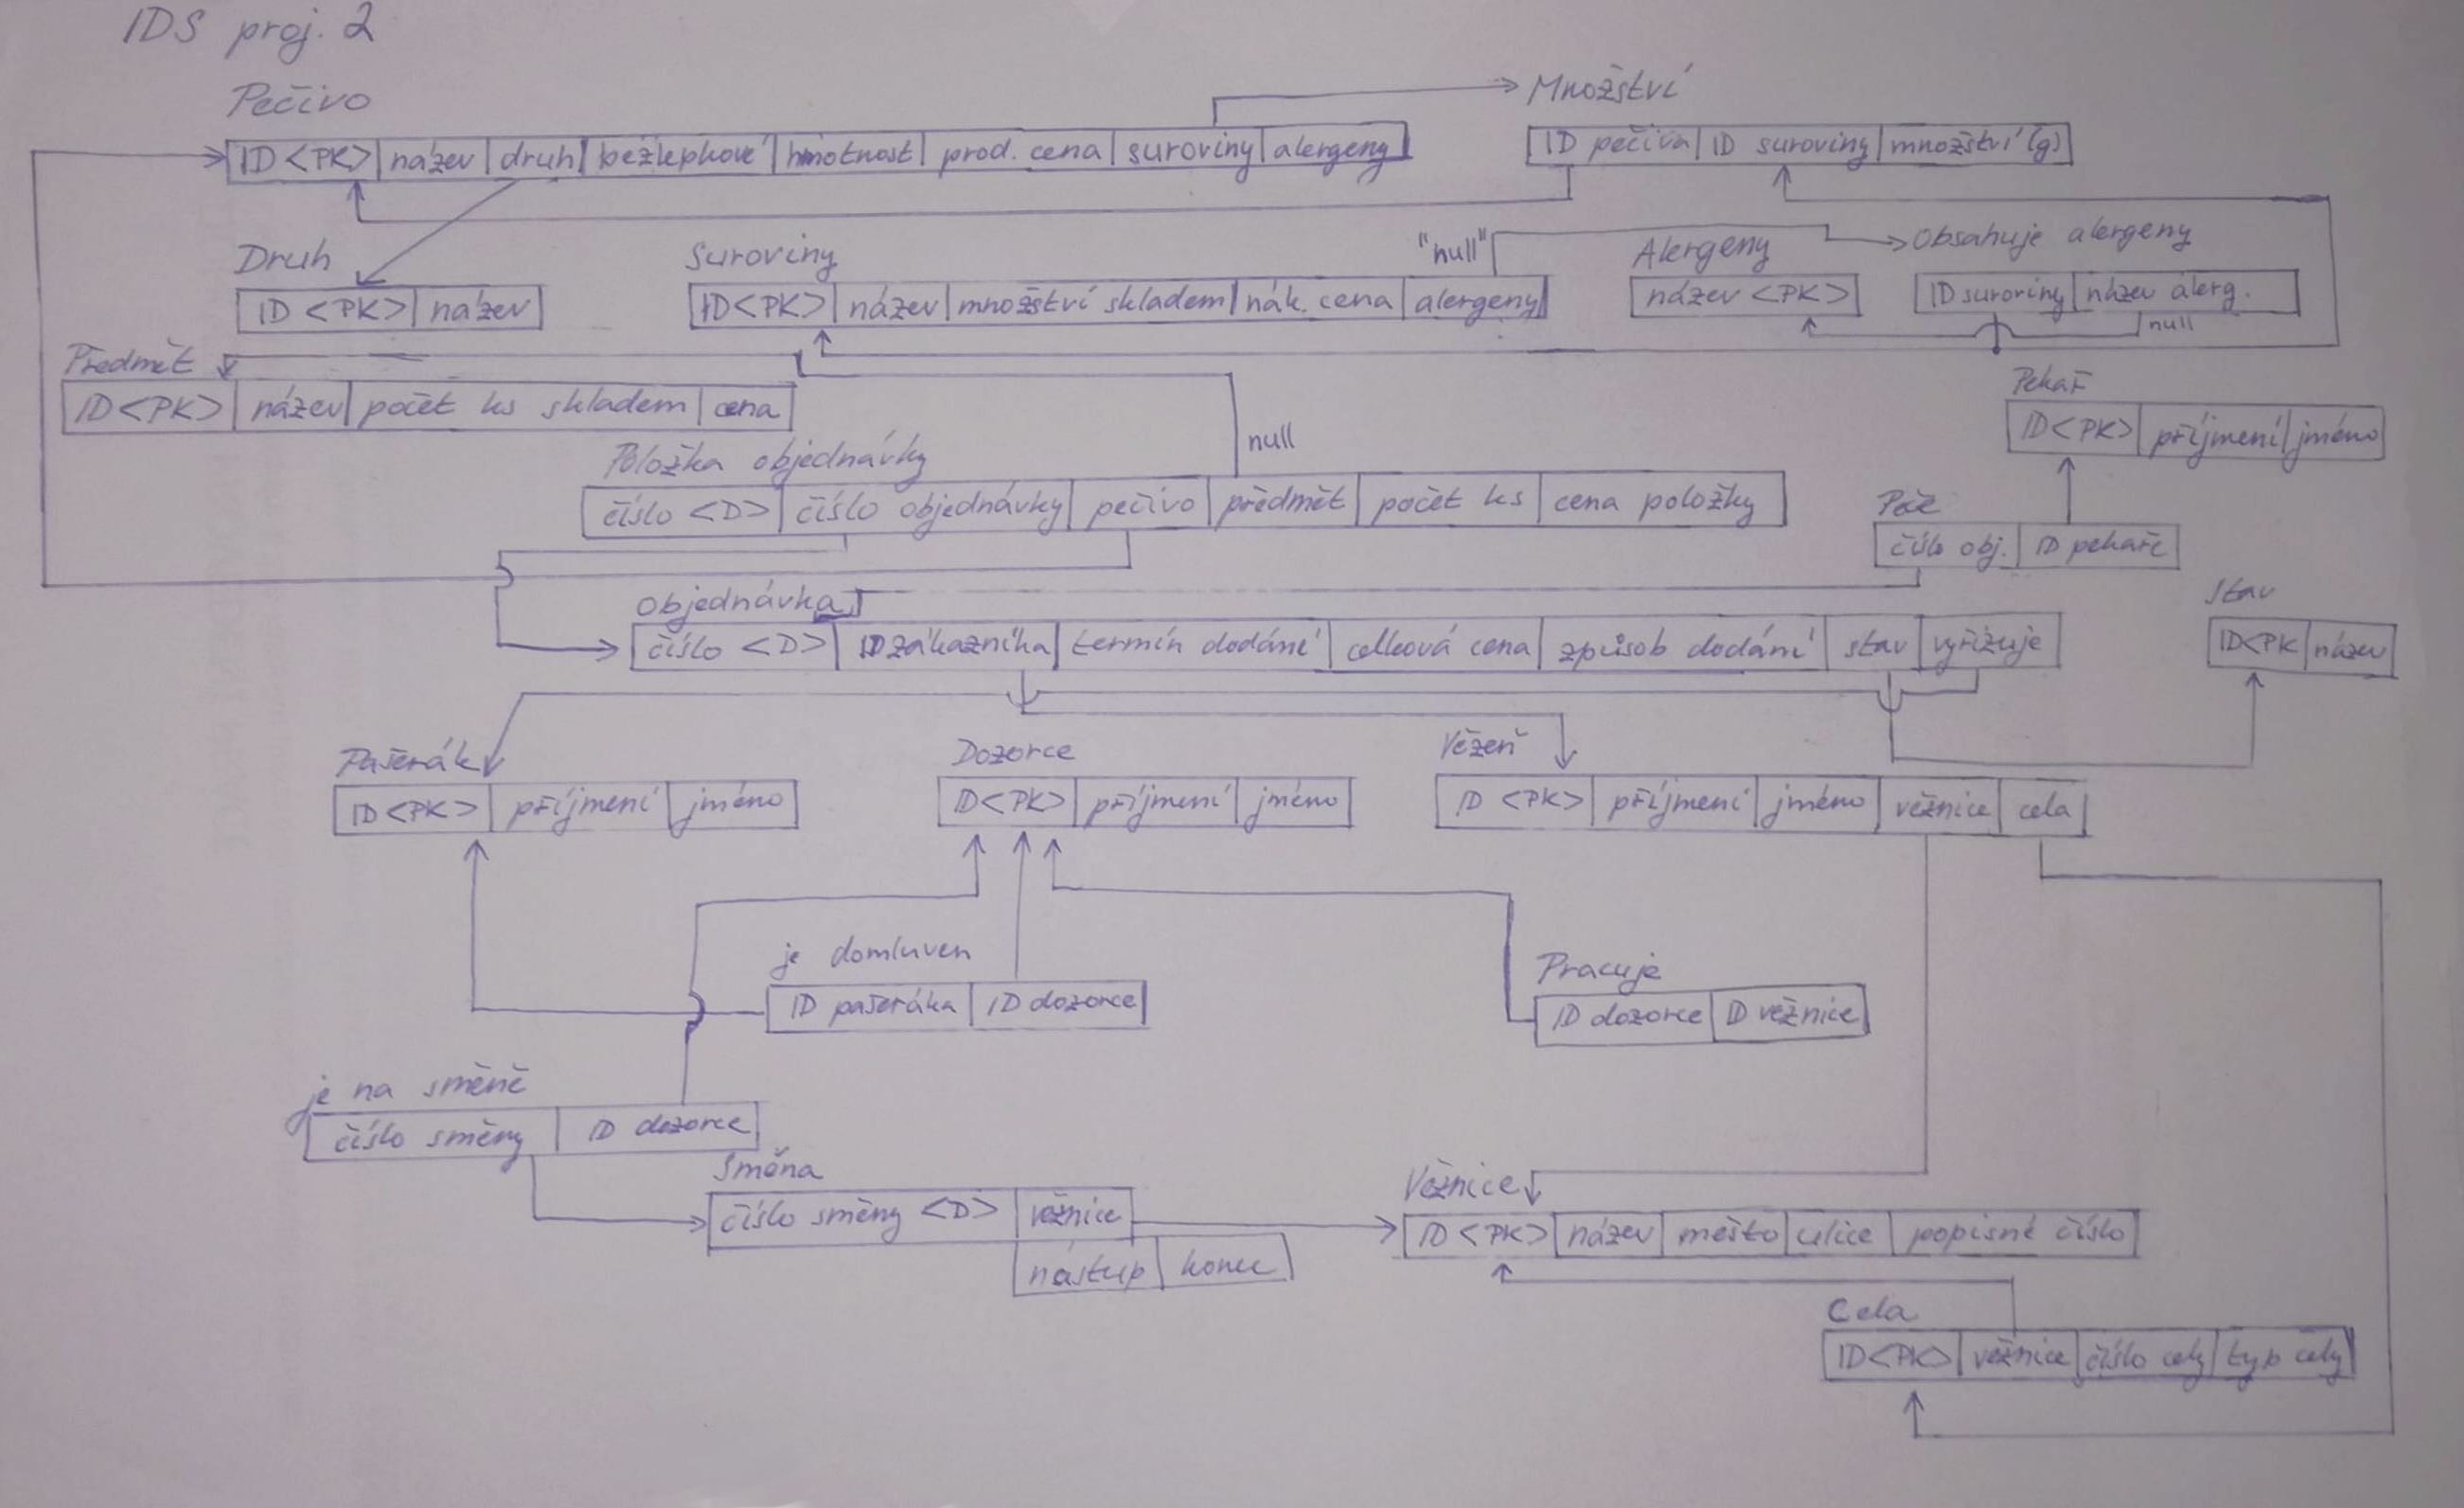 IDS proj. 2
Pečivo
Množství
ID <PK> název druh bezlepkové hmotnost prod. cena suroviny alergeny
ID pečiva ID suroviny množství (g)
Druh
Suroviny
"null"
Alergeny
Obsahuje alergeny
ID <PK> název
ID <PK> název množství skladem nák. cena alergeny
název <PK>
ID suroviny název alerg.
null
Předmět
ID <PK> název počet ks skladem cena
Pekař
ID <PK> příjmení jméno
null
Položka objednávky
číslo <D> číslo objednávky pečivo předmět počet ks cena položky
Peče
číslo obj. ID pekaře
Objednávka
číslo <D> ID zákazníka termín dodání celková cena způsob dodání stav vyřizuje
Stav
ID <PK název
Pašerák
Dozorce
Vězeň
ID <PK> příjmení jméno
ID <PK> příjmení jméno
ID <PK> příjmení jméno věznice cela
je domluven
ID pašeráka ID dozorce
Pracuje
ID dozorce ID věznice
je na směně
číslo směny ID dozorce
Směna
číslo směny <D> věznice
nástup konec
Věznice
ID <PK> název město ulice popisné číslo
Cela
ID <PK> věznice číslo cely typ cely